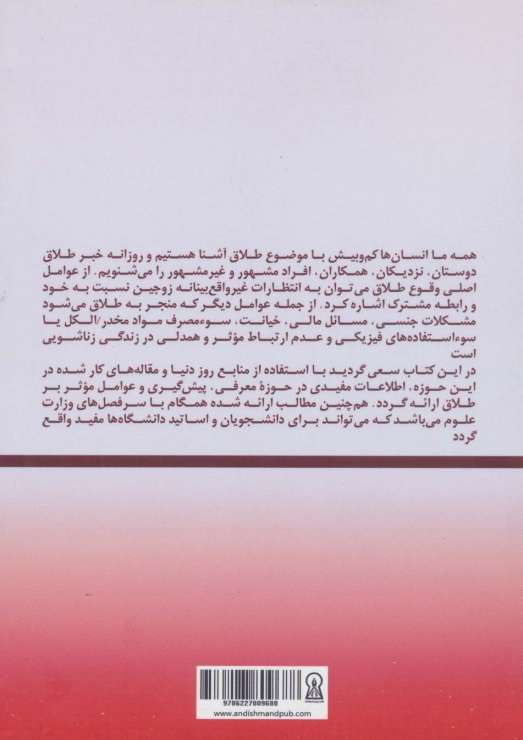 همه ما انسان‌ها کم‌وبیش با موضوع طلاق آشنا هستیم و روزانه خبر طلاق
دوستان، نزدیکان، همکاران، افراد مشهور و غیرمشهور را می‌شنویم. از عوامل
اصلی وقوع طلاق می‌توان به انتظارات غیرواقع‌بینانه زوجین نسبت به خود
و رابطه مشترک اشاره کرد. از جمله عوامل دیگر که منجر به طلاق می‌شود
مشکلات جنسی، مسائل مالی، خیانت، سوء‌مصرف مواد مخدر/الکل یا
سوءاستفاده‌های فیزیکی و عدم ارتباط مؤثر و همدلی در زندگی زناشویی
است
در این کتاب سعی گردید با استفاده از منابع روز دنیا و مقاله‌های کار شده در
این حوزه، اطلاعات مفیدی در حوزهٔ معرفی، پیش‌گیری و عوامل مؤثر بر
طلاق ارائه گردد. هم‌چنین مطالب ارائه شده همگام با سرفصل‌های وزارت
علوم می‌باشد که می‌تواند برای دانشجویان و اساتید دانشگاه‌ها مفید واقع
گردد
9786227809688
www.andishmandpub.com